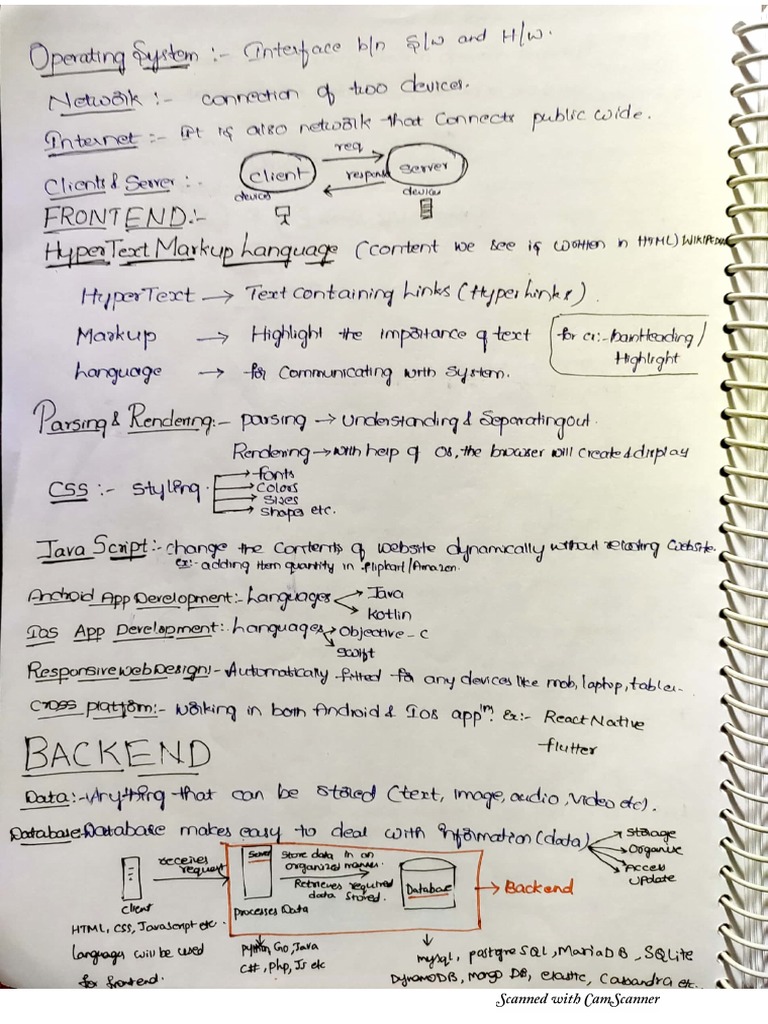 Operating System :- Interface b/n S/w and H/w.
Network :- connection of two devices.
Internet :- It is also network that connects public wide.
Clients & Server :- client req response Server
devices devices
FRONTEND:-
HyperText Markup Language (content we see is written in HTML) WIKIPEDIA
HyperText → Text containing Links (HyperLinks).
Markup → Highlight the importance of text
for ex:- Main Heading /
Highlight
Language → for communicating with system.
Parsing & Rendering:- parsing → understanding & Separating out.
Rendering → with help of OS, the browser will create & display
CSS :- styling
fonts
colors
sizes
shapes etc.
Java Script:- change the contents of website dynamically without reloading website.
ex:- adding item quantity in flipkart/Amazon.
Android App Development:- Languages Java
Kotlin
Ios App Development:- Languages Objective-C
swift
Responsive web Design:- Automatically fitted for any devices like mob, laptop, tablet.
Cross platform:- working in both Android & Ios appln. Ex:- React Native
flutter
BACKEND
Data:- Anything that can be stored (text, image, audio, video etc).
Database:- Database makes easy to deal with information (data)
Storage
Organise
Access
Update
client
receives
request
Server
Processes Data
Store data in an
organized manner
Retrieves required
data stored.
Database
→ Backend
HTML, CSS, Javascript etc
languages will be used
for frontend.
python, Go, Java
C#, Php, Js etc
mysql, postgreSQL, MariaDB, SQLite
DynamoDB, Mongo DB, elastic, Cassandra etc.
Scanned with CamScanner